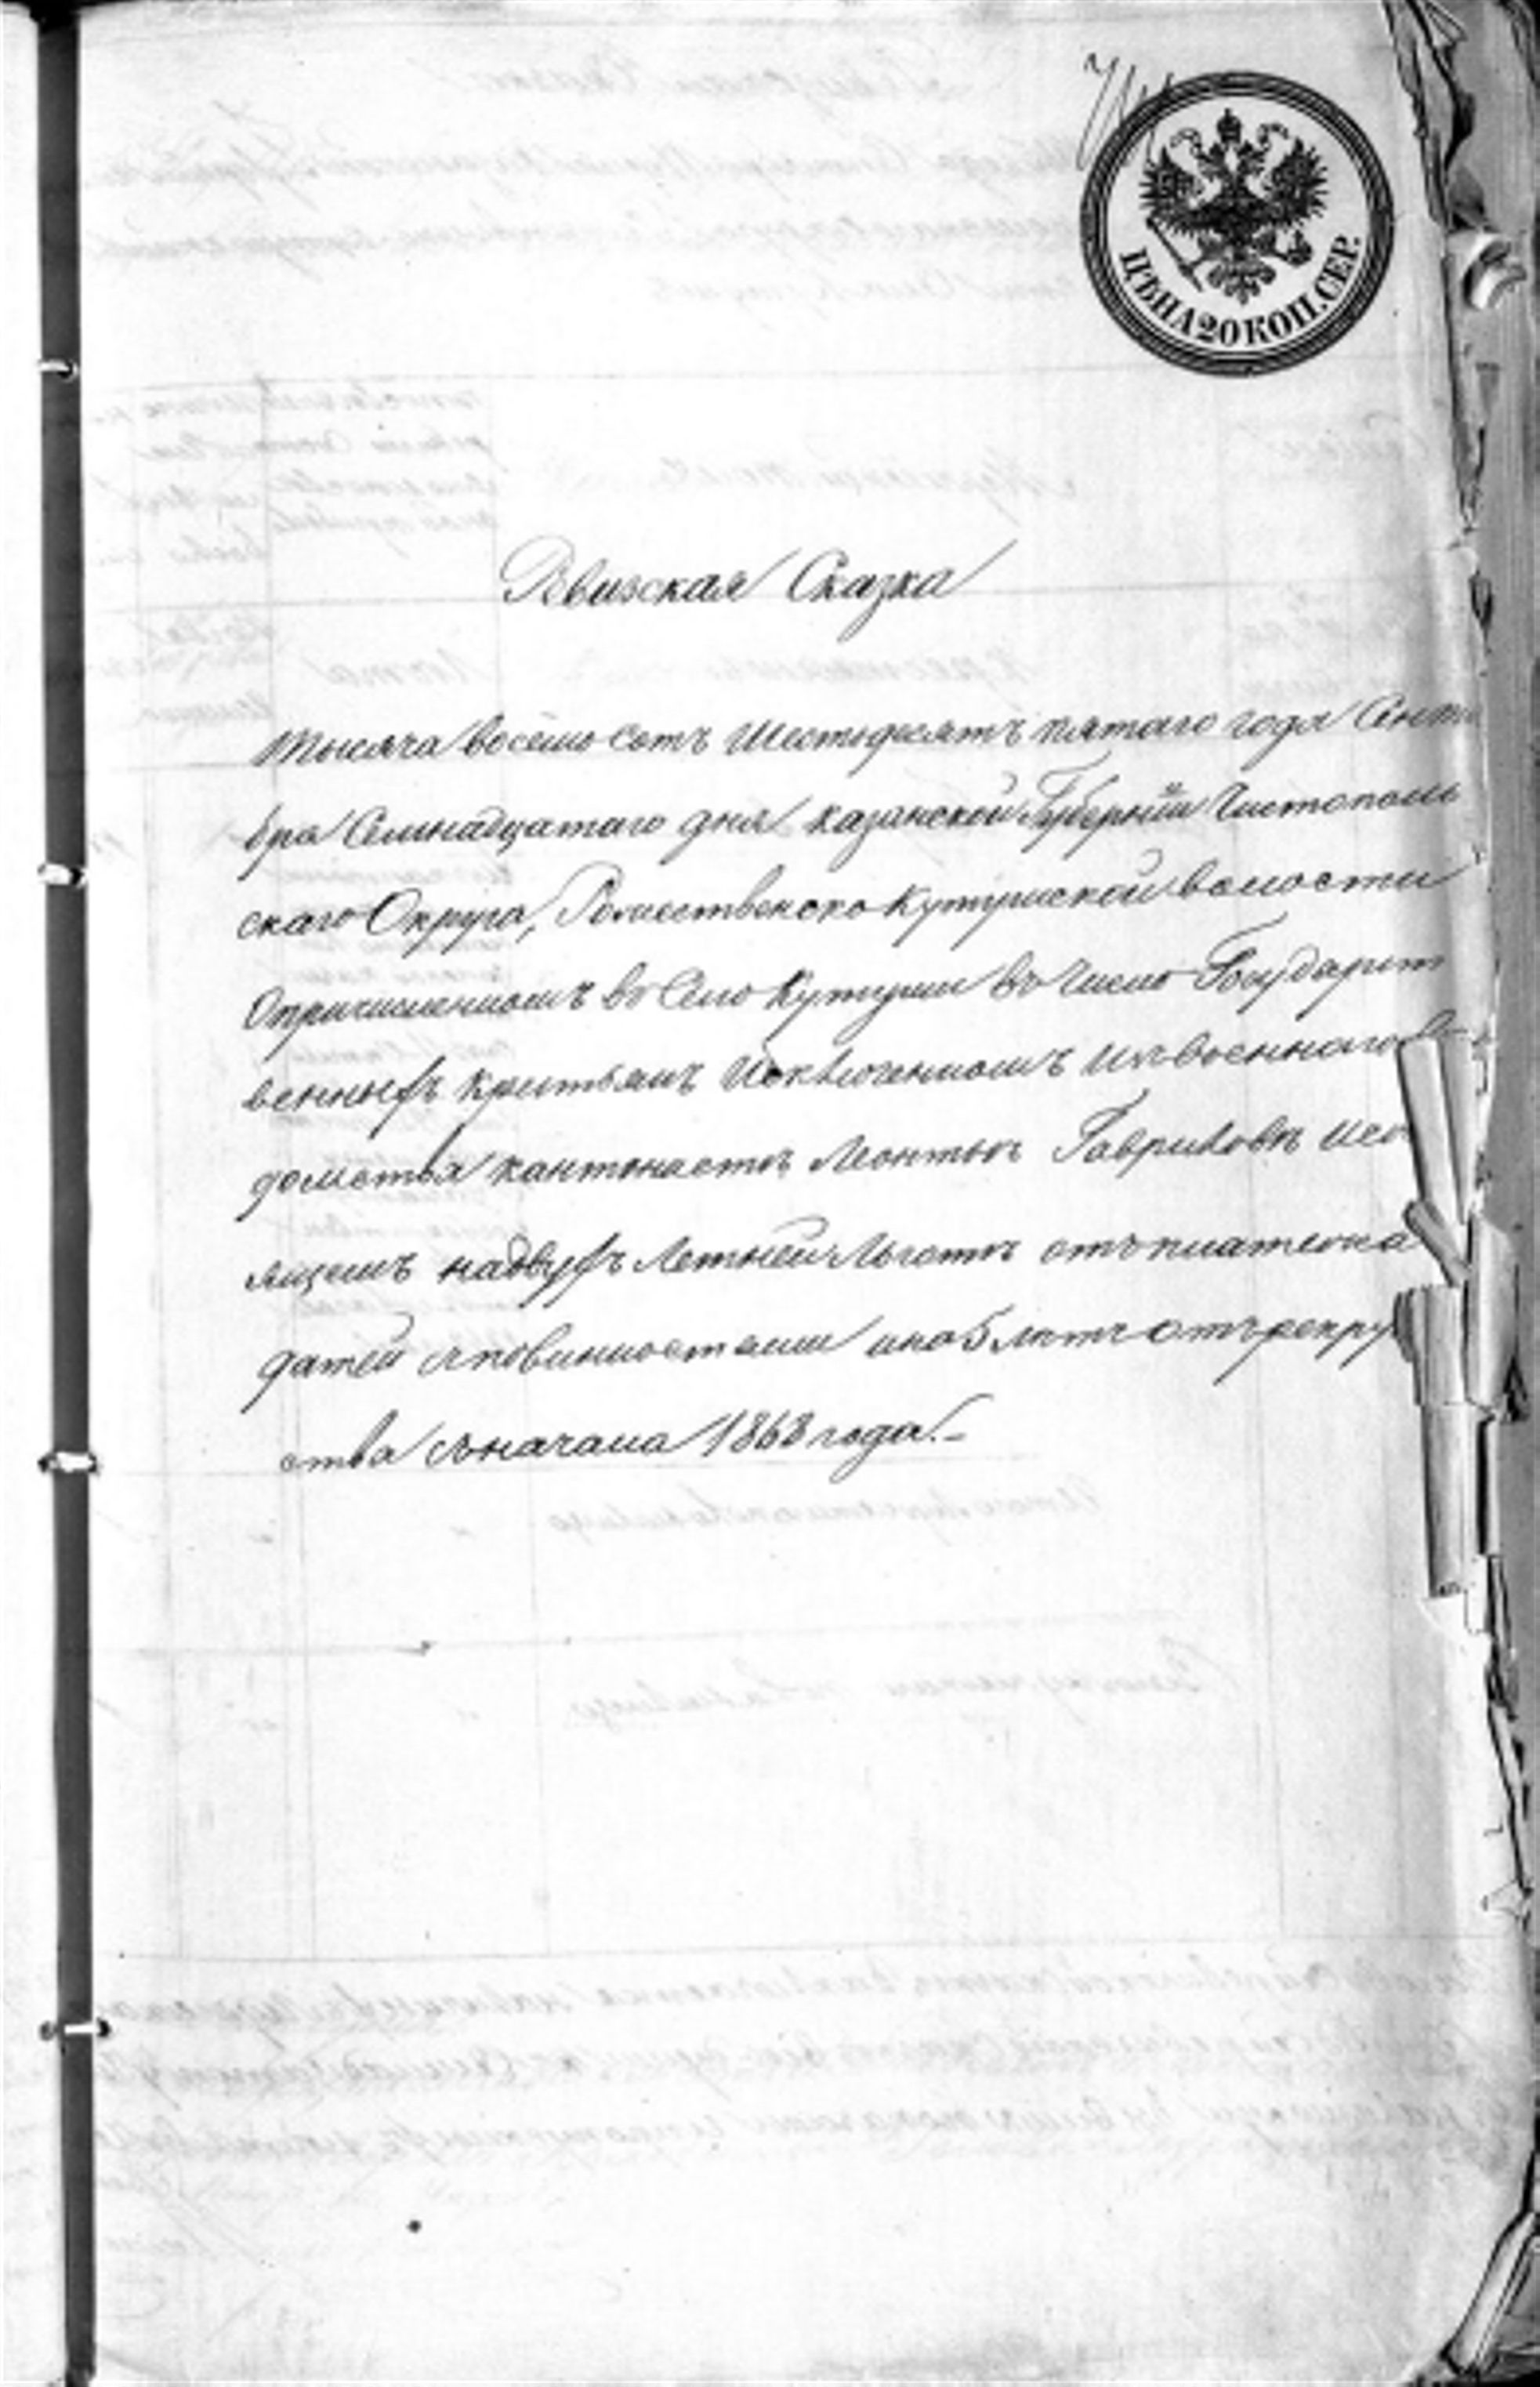 ЦѢНА 20 КОП. СЕР.
Ревизская Сказка
Тысяча восемь сотъ шестьдесятъ пятаго года Сентя
бра Семнадцатаго дня Казанской Губернiи Чистополь
скаго Округа, Рожественско Кутушской волости
О причисленномъ въ Село Кутуши въ число Государст
венныхъ крестьянъ Исключенномъ изъ военнаго
кантонистѣ Леонтьѣ Гавриловѣ
ящемъ на двухъ Летней Льготѣ отъ платежа
датей и повинностями и на 5 лѣтъ отъ рекру
ства съ начала 1868 года.-